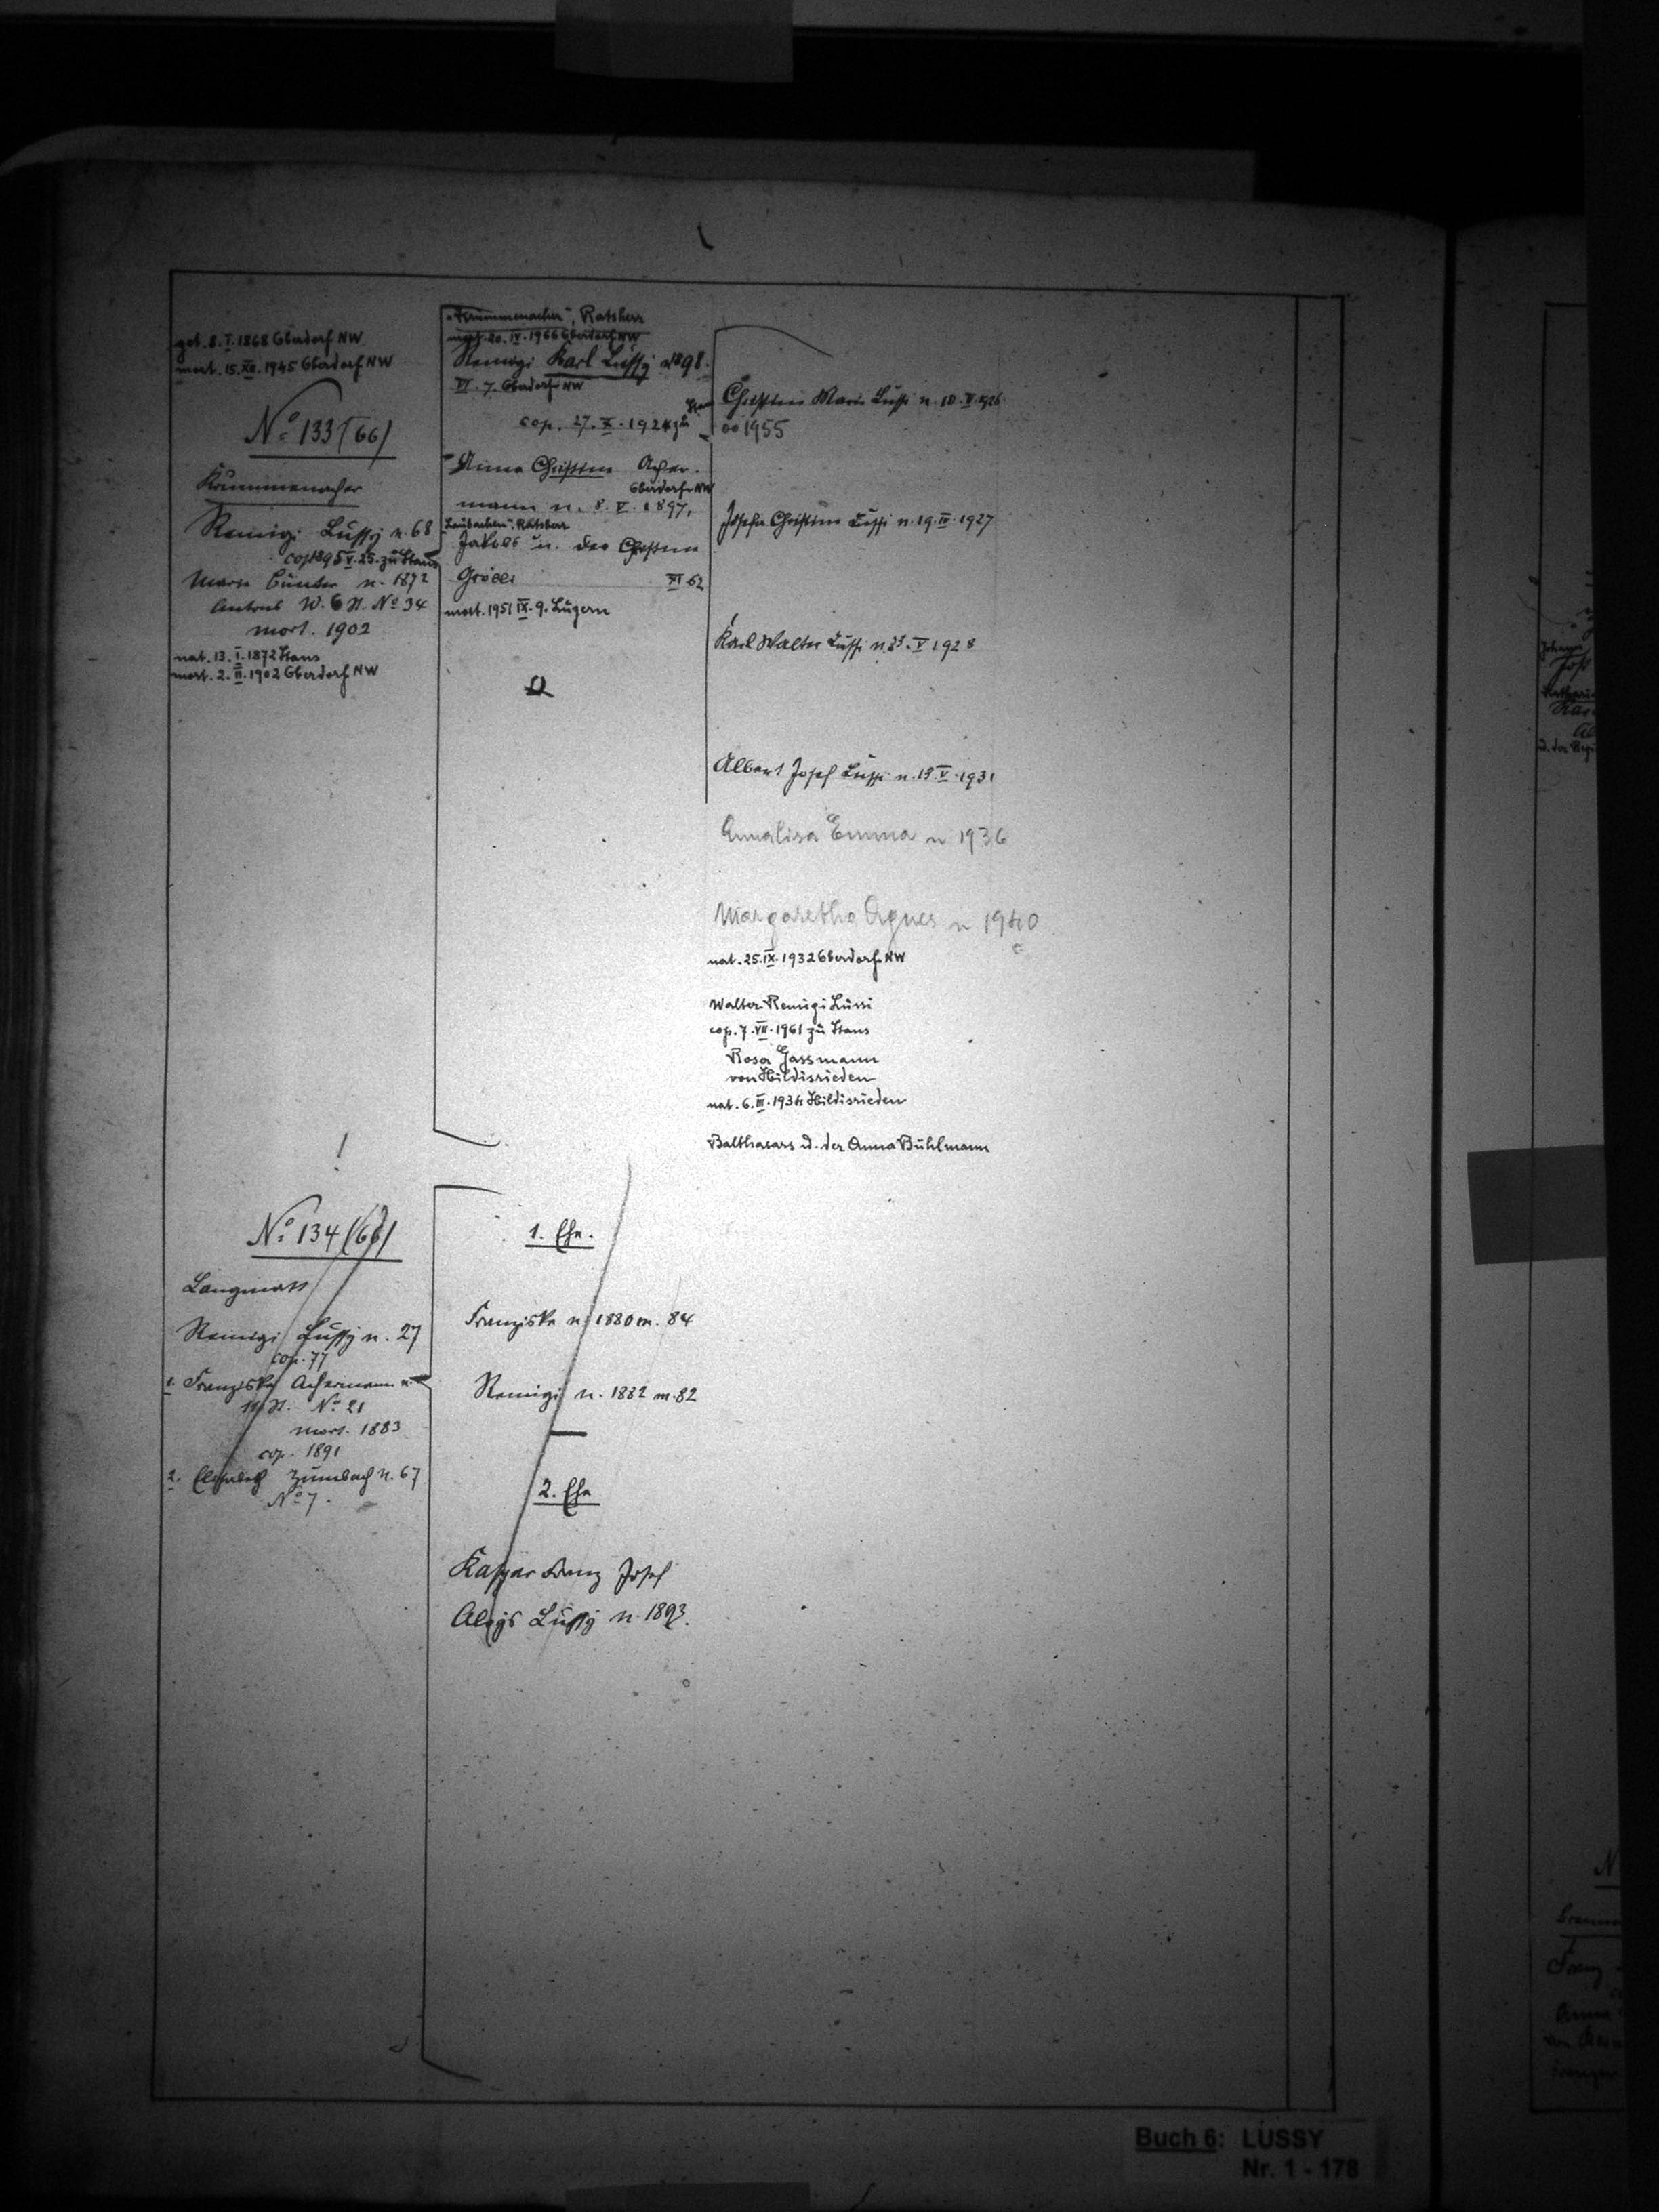 get. 8. I. 1868 Oberdorf NW
mort. 15. XII. 1945 Oberdorf NW
No 133 (66)
Krummenacher
Remigi Lussy n. 68
cop. 1895 V. 25. zu Stans
Marie Günter n. 1872
Antons W. 6 N. No 34
mort. 1902
nat. 13. I. 1872 Stans
mort. 2. II. 1902 Oberdorf NW
"Krummenacher", Ratsherr
mort. 20. IV. 1966 Oberdorf NW
Remigi Karl Lussy n 1898.
VI. 7. Oberdorf NW
cop. 27. X. 1924 zu Stans
Anna Christina Acher-
Oberdorf NW
mann n. 8. V. 1897,
Ratsherr
Jakobs u. der Christina
XI 62
mort. 1951 IX. 9. Lugern
Christina Marie Lussi n. 10. V. 1926
∞ 1955
Josefa Christina Lussi n. 19. IV. 1927
Karl Walter Lussi n. 23. V 1928
Albert Josef Lussi n. 19. V. 1931
Annalisa Emma n 1936
Margaretha Agnes n 1940
nat. 25. IX. 1932 Oberdorf NW
Walter Remigi Lussi
cop. 7. VII. 1961 zu Stans
Rosa Gassmann
von Hildisrieden
nat. 6. III. 1934 Hildisrieden
Balthasars u. der Anna Bühlmann
No 134 (66)
Langmatt
Remigi Lussy n. 27
cop. 77
1. Franziska Achermann n.
11 N. No 21
mort. 1883
cop. 1891
2. Elisabeth Zumbach n. 67
No 7.
1. Ehe.
Franziska n. 1880 m. 84
Remigi n. 1882 m. 82
2. Ehe
Kaspar Franz Josef
Aloys Lussy n. 1893.
Buch 6: LUSSY
Nr. 1 - 178